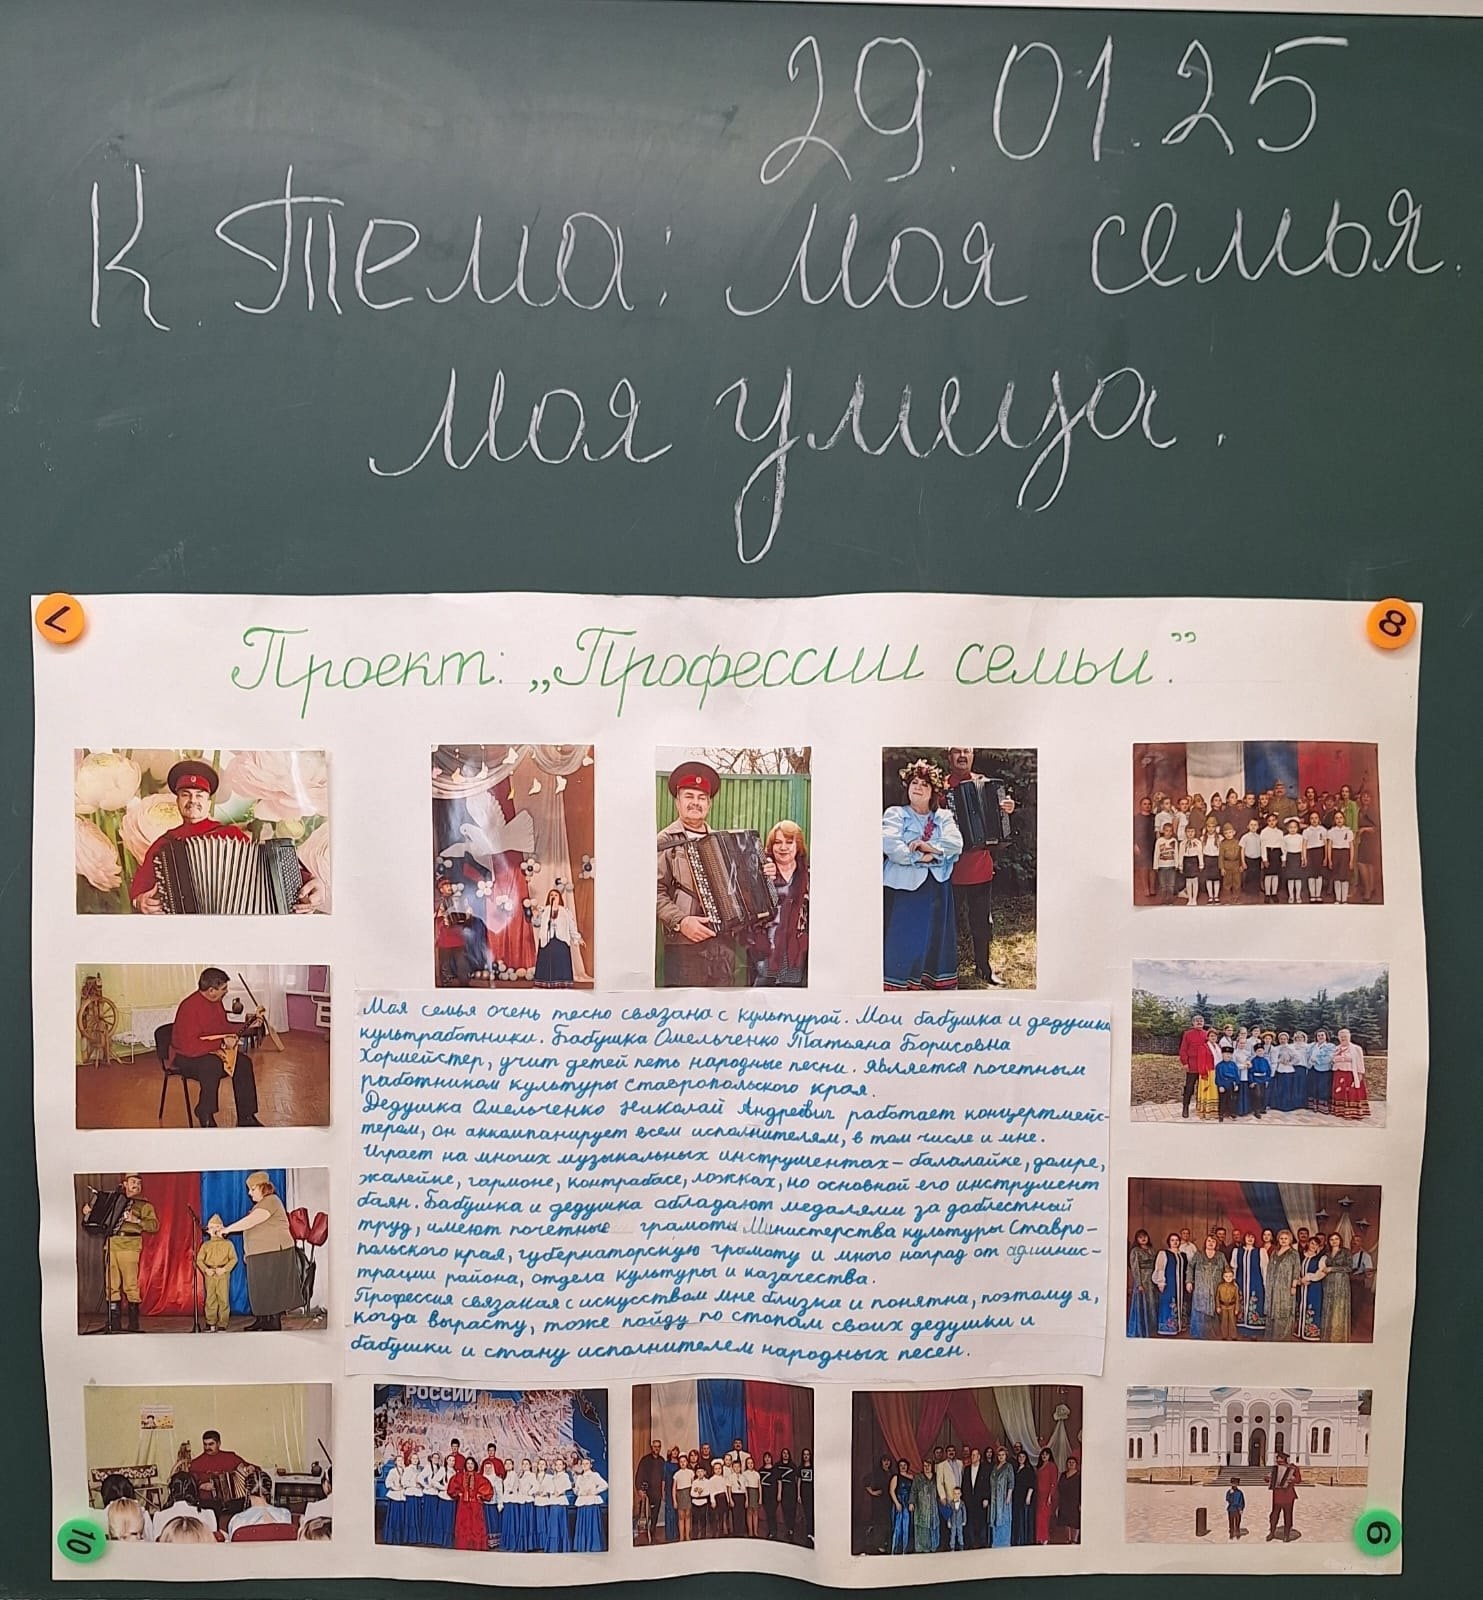 29.01.25
К. Тема: Моя семья.
Моя улица.
7
8
Проект: „Профессии семьи."
Моя семья очень тесно связана с культурой. Мои бабушка и дедушка
культработники. Бабушка Омельченко Татьяна Борисовна
Хормейстер, учит детей петь народные песни. Является почетным
работником культуры Ставропольского края.
Дедушка Омельченко Николай Андреевич работает концертмейс-
тером, он аккомпанирует всем исполнителям, в том числе и мне.
Играет на многих музыкальных инструментах – балалайке, домре,
жалейке, гармоне, контрабасе, ложках, но основной его инструмент
баян. Бабушка и дедушка обладают медалями за доблестный
труд, имеют почетные грамоты Министерства культуры Ставро-
польского края, губернаторскую грамоту и много наград от админис-
трации района, отдела культуры и казачества.
Профессия связаная с искусством мне близка и понятна, поэтому я,
когда вырасту, тоже пойду по стопам своих дедушки и
бабушки и стану исполнителем народных песен.
РОССИИ
Z Z
10
6